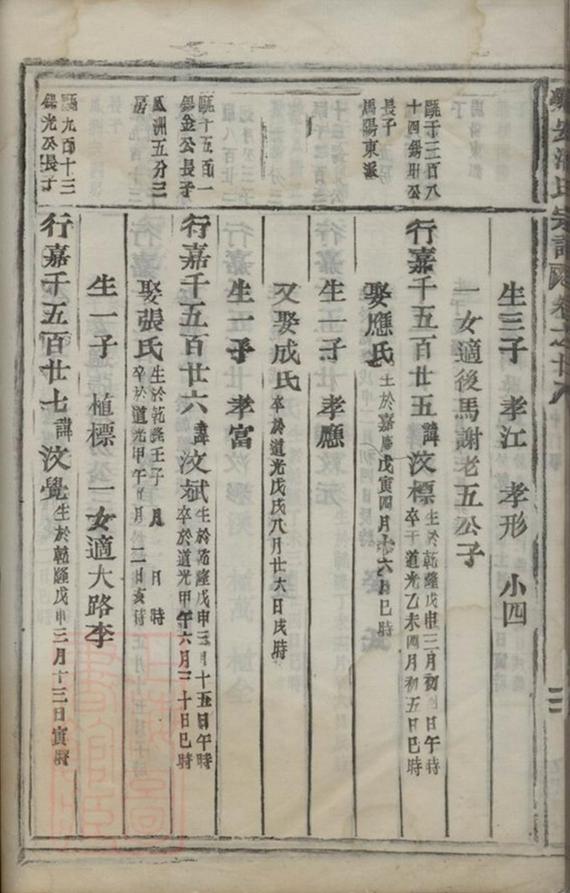 氏宗譜 卷之廿八
生三子 孝江 孝形 小四
一女適後馬謝老五公子
甌千三百八
十四錫 公
長子
馬陽東派
行嘉千五百廿五諱汶標
生於乾隆戊申三月初 日午時
卒于道光乙未四月初五日巳時
娶應氏生於嘉慶戊寅四月十六日巳時
生一子 孝應
又娶成氏卒於道光戊戌八月廿六日戌時
生一子 孝富
甌十五百一
錫金公長子
瓜洲五分三
房
行嘉千五百廿六諱汶斌
生於乾隆戊申三月十五日午時
卒於道光甲午六月二十日巳時
娶張氏
生於乾隆壬子 月 日 時
卒於道光甲午 月 二日亥時
生一子 植標 一女適大路李
甌九百十三
錫光公長子
行嘉千五百廿七諱汶覺生於乾隆戊申三月十三日寅時